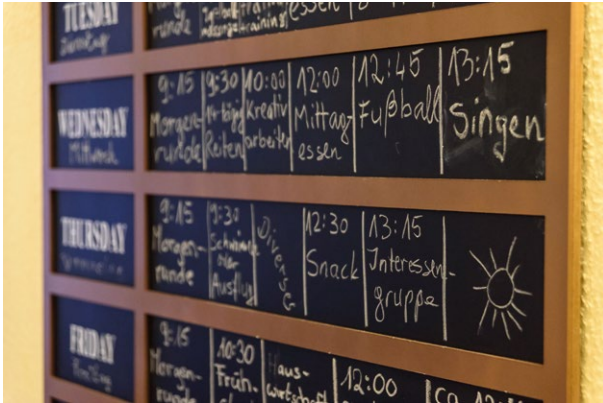 TUESDAY
Dienstag
runde
essen
WEDNESDAY
Mittwoch
9:15
Morgen-
runde
9:30
Reiten
10:00
Kreativ
arbeiten
12:00
Mittag-
essen
12:45
Fußball
13:15
Singen
THURSDAY
9:15
Morgen-
runde
9:30
Schwimmen
oder
Ausflug
Diverse
12:30
Snack
13:15
Interessen-
gruppe
FRIDAY
9:15
Morgen-
runde
10:30
Früh-
Haus-
wirtschaft
12:00